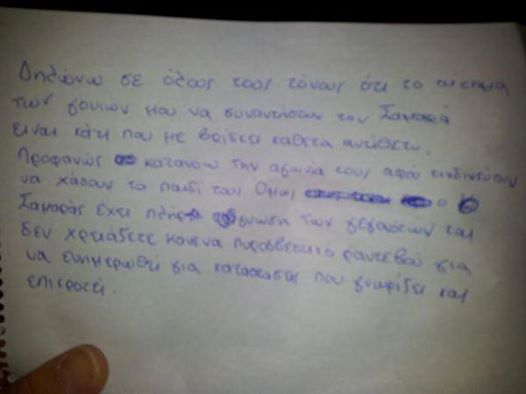 Δηλώνω σε όλους τους τόνους ότι το αίτημα
των γονιων μου να συναντησουν τον Σαμαρά
ειναι κάτι που με βρίσκει καθετα αντίθετο.
Προφανώς κατανοω την αγωνία τους αφού κινδινεύουν
να χάσουν το παιδί τους Ομως ο
Σαμαράς έχει πλήρη γνωση των γεγονότων και
δεν χρειάζεται κανενα πυροσβεστικό ραντεβού για
να ενημερωθεί για καταστασεις που γνωρίζει και
επικροτεί.